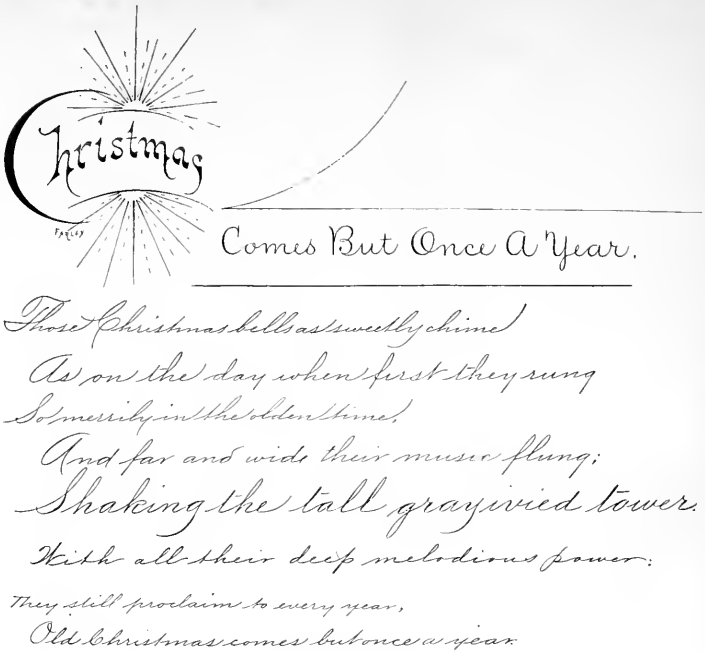 Christmas
FARLEY
Comes But Once A Year.
Those Christmas bells as sweetly chime
As on the day when first they rung
So merrily in the olden time,
And far and wide their music flung;
Shaking the tall gray ivied tower,
With all their deep melodious power;
They still proclaim to every year,
Old Christmas comes but once a year.